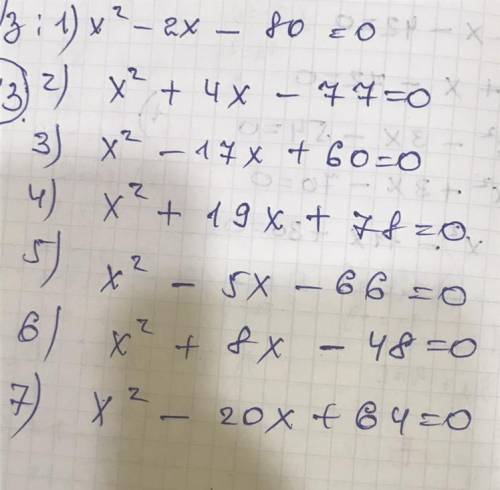 з: 1) x² - 2x - 80 = 0
3) 2) x² + 4x - 77 = 0
3) x² - 17x + 60 = 0
4) x² + 19x + 78 = 0
5) x² - 5x - 66 = 0
6) x² + 8x - 48 = 0
7) x² - 20x + 64 = 0